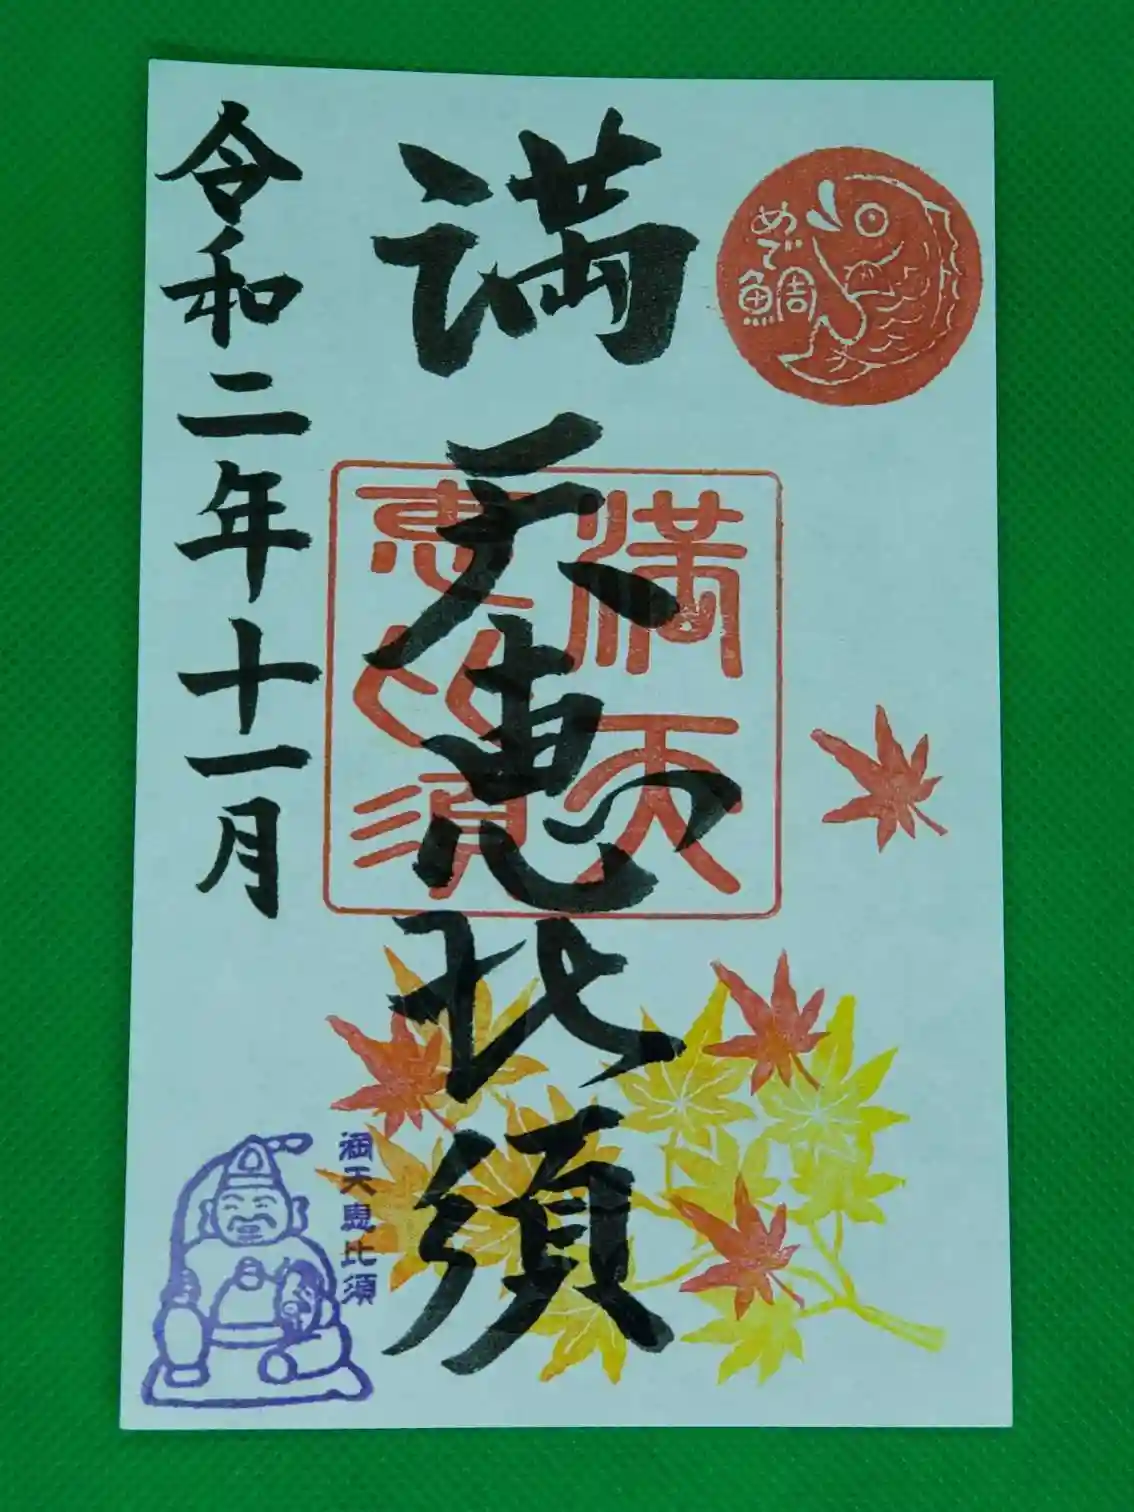 めで鯛
満天恵比須
満天
恵比須
満天恵比須
令和二年十一月